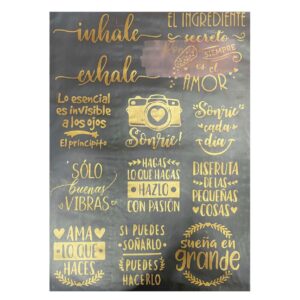 inhale
exhale
EL INGREDIENTE
secreto
SIEMPRE
es el
AMOR
Lo esencial
es invisible
a los ojos
El principito
Sonríe!
Sonríe
cada
día
SÓLO
buenas
VIBRAS
HAGAS
LO QUE HAGAS
HAZLO
CON PASIÓN
DISFRUTA
DE LAS
PEQUEÑAS
COSAS
AMA
LO QUE
HACES
SI PUEDES
SOÑARLO
PUEDES
HACERLO
sueña en
grande